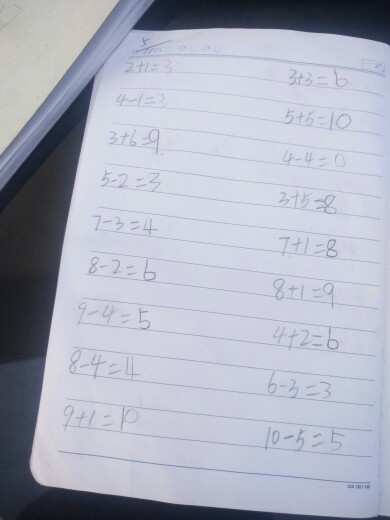 2+1=3 3+3=6
4-1=3 5+5=10
3+6=9 4-4=0
5-2=3 3+5=8
7-3=4 7+1=8
8-2=6 8+1=9
9-4=5 4+2=6
8-4=4 6-3=3
9+1=10 10-5=5